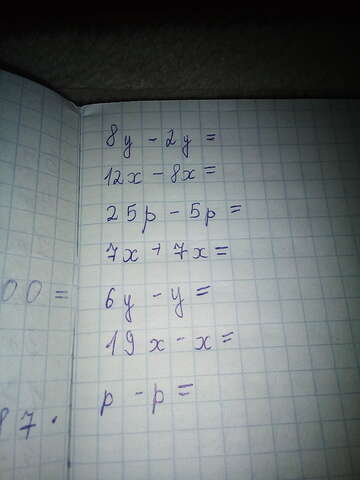 8y - 2y =
12x - 8x =
25p - 5p =
7x + 7x =
00 =
6y - y =
19x - x =
p - p =
87.